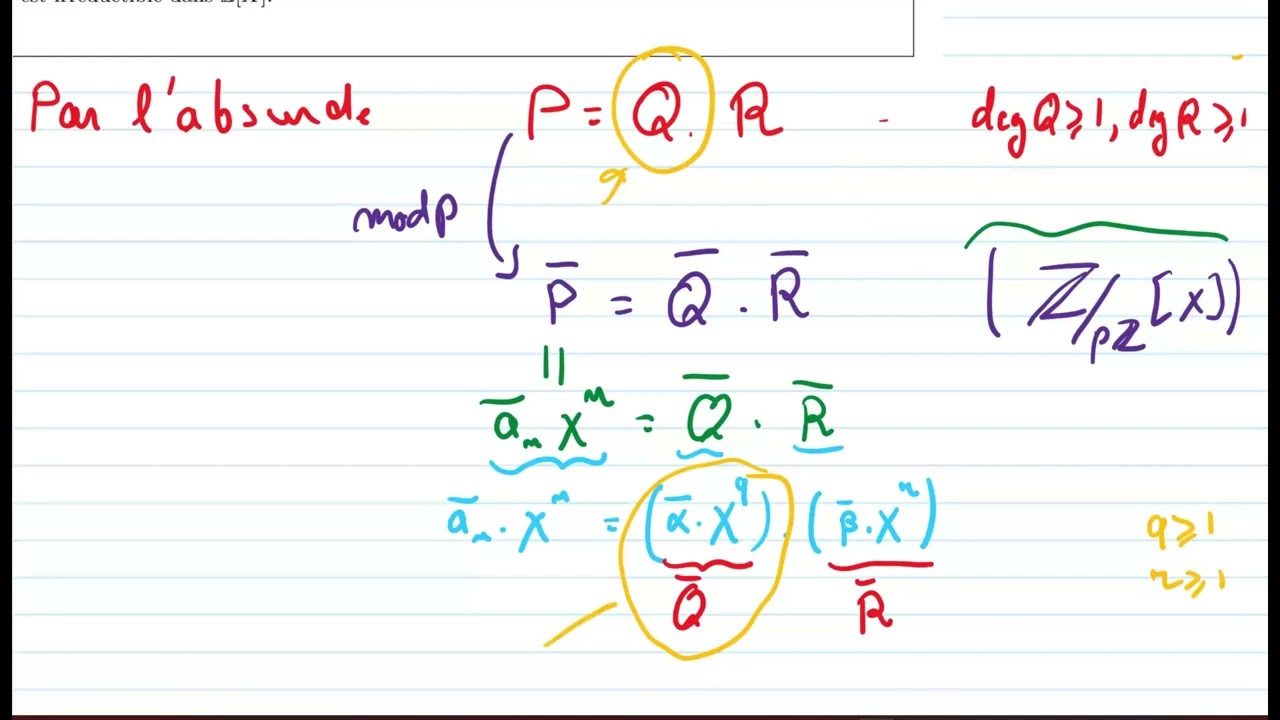 est irréductible dans ℤ[X].
Par l'absurde P = Q . R degQ ⩾ 1, degR ⩾ 1
mod p
P̅ = Q̅ . R̅ ( ℤ/pℤ [X] )
||
a̅ₙ Xⁿ = Q̅ . R̅
a̅ₙ . Xⁿ = (α̅ . X^q) . (β̅ . X^r) q ⩾ 1
Q̅ R̅ r ⩾ 1